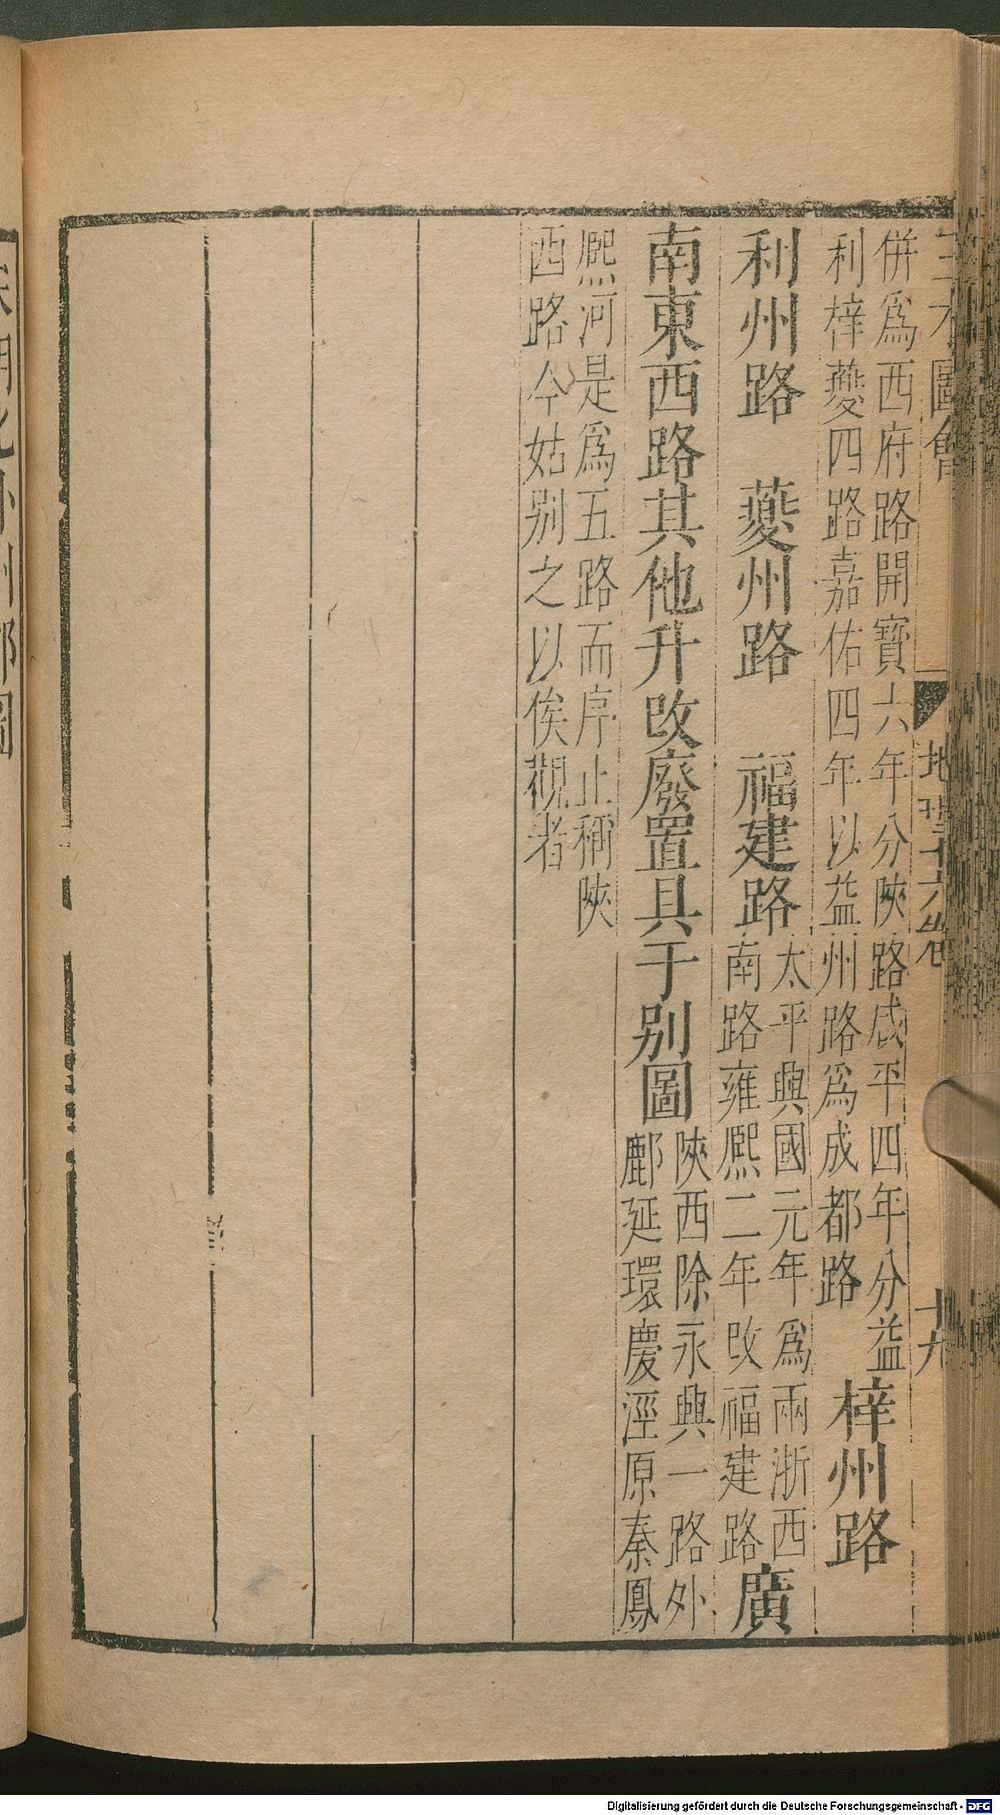 三才圖會 地理十六卷 十九
併爲西府路開寶六年分陝路咸平四年分益
利梓夔四路嘉佑四年以益州路爲成都路
梓州路
利州路 夔州路 福建路
太平興國元年爲兩浙西
南路雍熈二年改福建路
廣
南東西路其他升改廢置具于别圖
陝西除永興一路外
鄜延環慶涇原秦鳳
熈河是爲五路而序止稱陝
西路今姑别之以俟觀者